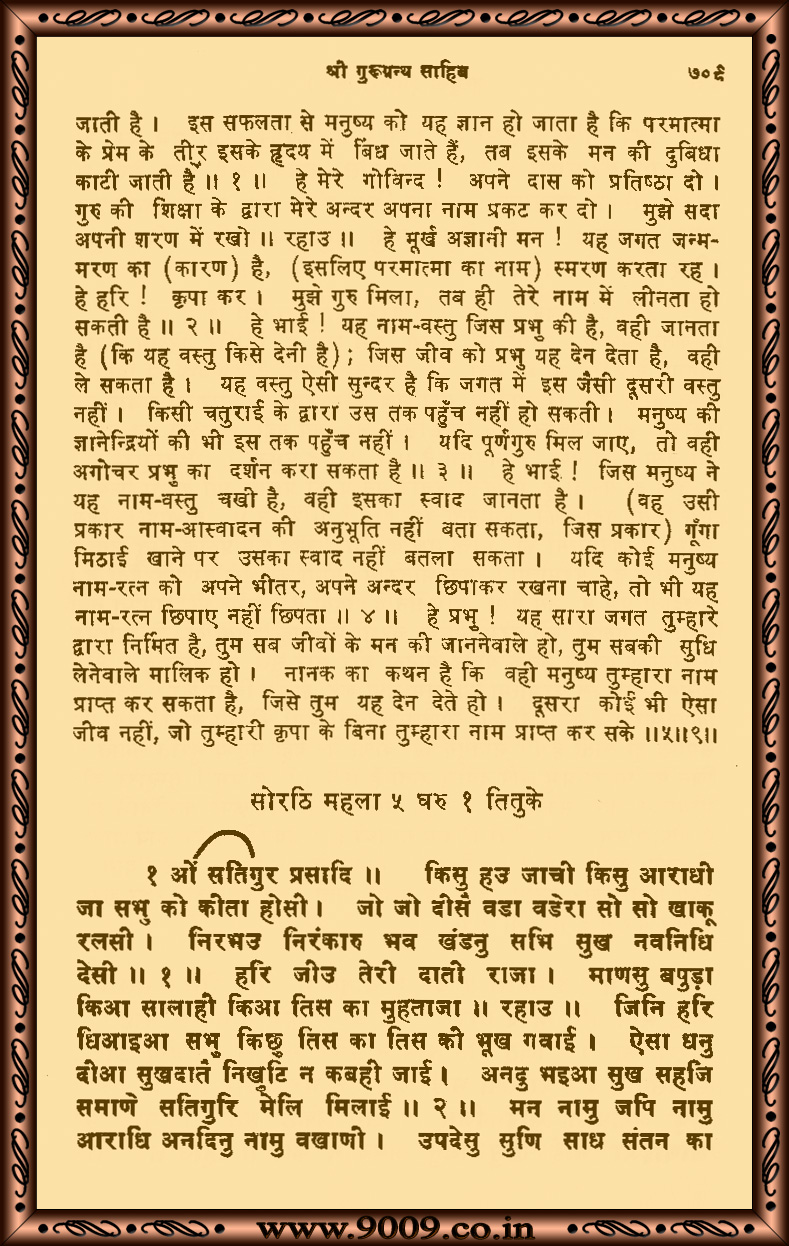 श्री गुरूग्रन्थ साहिब ७०९
जाती है । इस सफलता से मनुष्य को यह ज्ञान हो जाता है कि परमात्मा
के प्रेम के तीर इसके हृदय में बिंध जाते हैं, तब इसके मन की दुबिधा
काटी जाती है ॥ १ ॥ हे मेरे गोविन्द ! अपने दास को प्रतिष्ठा दो ।
गुरु की शिक्षा के द्वारा मेरे अन्दर अपना नाम प्रकट कर दो । मुझे सदा
अपनी शरण में रखो ॥ रहाउ ॥ हे मूर्ख अज्ञानी मन ! यह जगत जन्म-
मरण का (कारण) है, (इसलिए परमात्मा का नाम) स्मरण करता रह ।
हे हरि ! कृपा कर । मुझे गुरु मिला, तब ही तेरे नाम में लीनता हो
सकती है ॥ २ ॥ हे भाई ! यह नाम-वस्तु जिस प्रभु की है, वही जानता
है (कि यह वस्तु किसे देनी है) ; जिस जीव को प्रभु यह देन देता है, वही
ले सकता है । यह वस्तु ऐसी सुन्दर है कि जगत में इस जैसी दूसरी वस्तु
नहीं । किसी चतुराई के द्वारा उस तक पहुँच नहीं हो सकती । मनुष्य की
ज्ञानेन्द्रियों की भी इस तक पहुँच नहीं । यदि पूर्णगुरु मिल जाए, तो वही
अगोचर प्रभु का दर्शन करा सकता है ॥ ३ ॥ हे भाई ! जिस मनुष्य ने
यह नाम-वस्तु चखी है, वही इसका स्वाद जानता है । (वह उसी
प्रकार नाम-आस्वादन की अनुभूति नहीं बता सकता, जिस प्रकार) गूँगा
मिठाई खाने पर उसका स्वाद नहीं बतला सकता । यदि कोई मनुष्य
नाम-रत्न को अपने भीतर, अपने अन्दर छिपाकर रखना चाहे, तो भी यह
नाम-रत्न छिपाए नहीं छिपता ॥ ४ ॥ हे प्रभु ! यह सारा जगत तुम्हारे
द्वारा निर्मित है, तुम सब जीवों के मन की जाननेवाले हो, तुम सबकी सुधि
लेनेवाले मालिक हो । नानक का कथन है कि वही मनुष्य तुम्हारा नाम
प्राप्त कर सकता है, जिसे तुम यह देन देते हो । दूसरा कोई भी ऐसा
जीव नहीं, जो तुम्हारी कृपा के बिना तुम्हारा नाम प्राप्त कर सके ॥५॥९॥
सोरठि महला ५ घरु १ तितुके
१ ओं सतिगुर प्रसादि ॥ किसु हउ जाची किसु आराधी
जा सभु को कीता होसी । जो जो दीसै वडा वडेरा सो सो खाकू
रलसी । निरभउ निरंकारु भव खंडनु सभि सुख नवनिधि
देसी ॥ १ ॥ हरि जीउ तेरी दाती राजा । माणसु बपुड़ा
किआ सालाही किआ तिस का मुहताजा ॥ रहाउ ॥ जिनि हरि
धिआइआ सभु किछु तिस का तिस की भूख गवाई । ऐसा धनु
दीआ सुखदातै निखुटि न कबही जाई । अनदु भइआ सुख सहजि
समाणे सतिगुरि मेलि मिलाई ॥ २ ॥ मन नामु जपि नामु
आराधि अनदिनु नामु वखाणी । उपदेसु सुणि साध संतन का
www.9009.co.in